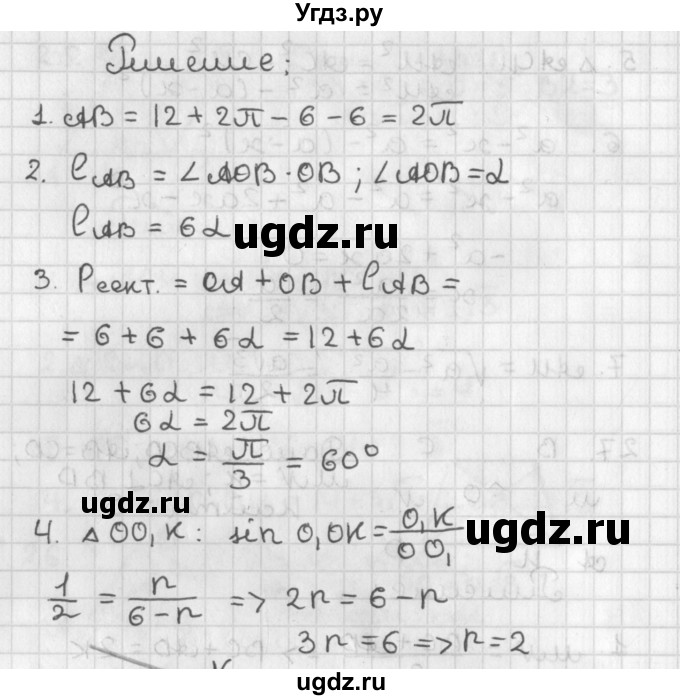 Угдз.ру
Решение:
1. AB = 12 + 2π - 6 - 6 = 2π
2. lAB = ∠AOB · OB ; ∠AOB = α
lAB = 6α
ugdz.ru
3. Pсект. = OA + OB + lAB =
= 6 + 6 + 6α = 12 + 6α
12 + 6α = 12 + 2π
6α = 2π
α = π/3 = 60°
ugdz.ru
4. △ OO₁K : sin O₁OK = O₁K/OO₁
ugdz.ru
1/2 = r/(6-r) => 2r = 6 - r
3r = 6 => r = 2
ugdz.ru